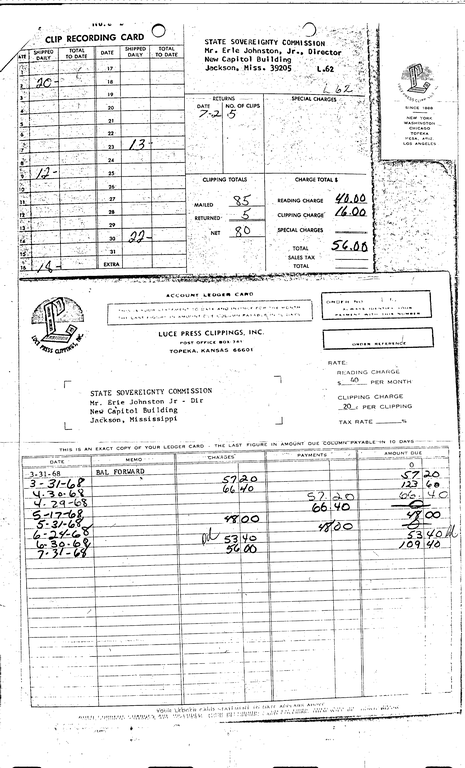 CLIP RECORDING CARD
DATE SHIPPED DAILY TOTAL TO DATE DATE SHIPPED DAILY TOTAL TO DATE
1 17
2 20- 18
3 19
4 20
5 21
6 22
7 23 13-
8 24
9 12- 25
10 26
11 27
12 28
13 29
14 30 22-
15 31
16 18- EXTRA
STATE SOVEREIGNTY COMMISSION
Mr. Erle Johnston, Jr., Director
New Capitol Building
Jackson, Miss. 39205 L.62
L62
RETURNS SPECIAL CHARGES
DATE NO. OF CLIPS
7-2 5
CLIPPING TOTALS CHARGE TOTAL $
MAILED 85 READING CHARGE 40.00
RETURNED 5 CLIPPING CHARGE 16.00
NET 80 SPECIAL CHARGES
TOTAL 56.00
SALES TAX
TOTAL
LUCE PRESS CLIPPINGS, INC.
SINCE 1888
NEW YORK
WASHINGTON
CHICAGO
TOPEKA
MESA, ARIZ.
LOS ANGELES
LUCE PRESS CLIPPINGS, INC.
ACCOUNT LEDGER CARD
THIS IS YOUR STATEMENT TO DATE AND INVOICE FOR THE MONTH
THE LAST FIGURE IN AMOUNT DUE COLUMN PAYABLE IN 10 DAYS
LUCE PRESS CLIPPINGS, INC.
POST OFFICE BOX 701
TOPEKA, KANSAS 66601
ORDER NO.
ALWAYS IDENTIFY YOUR
PAYMENT WITH THIS NUMBER
ORDER REFERENCE
STATE SOVEREIGNTY COMMISSION
Mr. Erle Johnston Jr - Dir
New Capitol Building
Jackson, Mississippi
RATE:
READING CHARGE
$ 40 PER MONTH
CLIPPING CHARGE
20 ¢ PER CLIPPING
TAX RATE %
THIS IS AN EXACT COPY OF YOUR LEDGER CARD - THE LAST FIGURE IN AMOUNT DUE COLUMN PAYABLE IN 10 DAYS
DATE MEMO CHARGES PAYMENTS AMOUNT DUE
3-31-68 BAL FORWARD 0
3-31-68 57 20 57 20
4-30-68 66 40 123 60
4-29-68 57 20 66 40
5-17-68 66 40 0
5-31-68 48 00 48 00
6-24-68 48 00 0
6-30-68 pd 53 40 53 40 pd
7-31-68 56 00 109 40
YOUR LEDGER CARD STATEMENT TO DATE APPEARS ABOVE